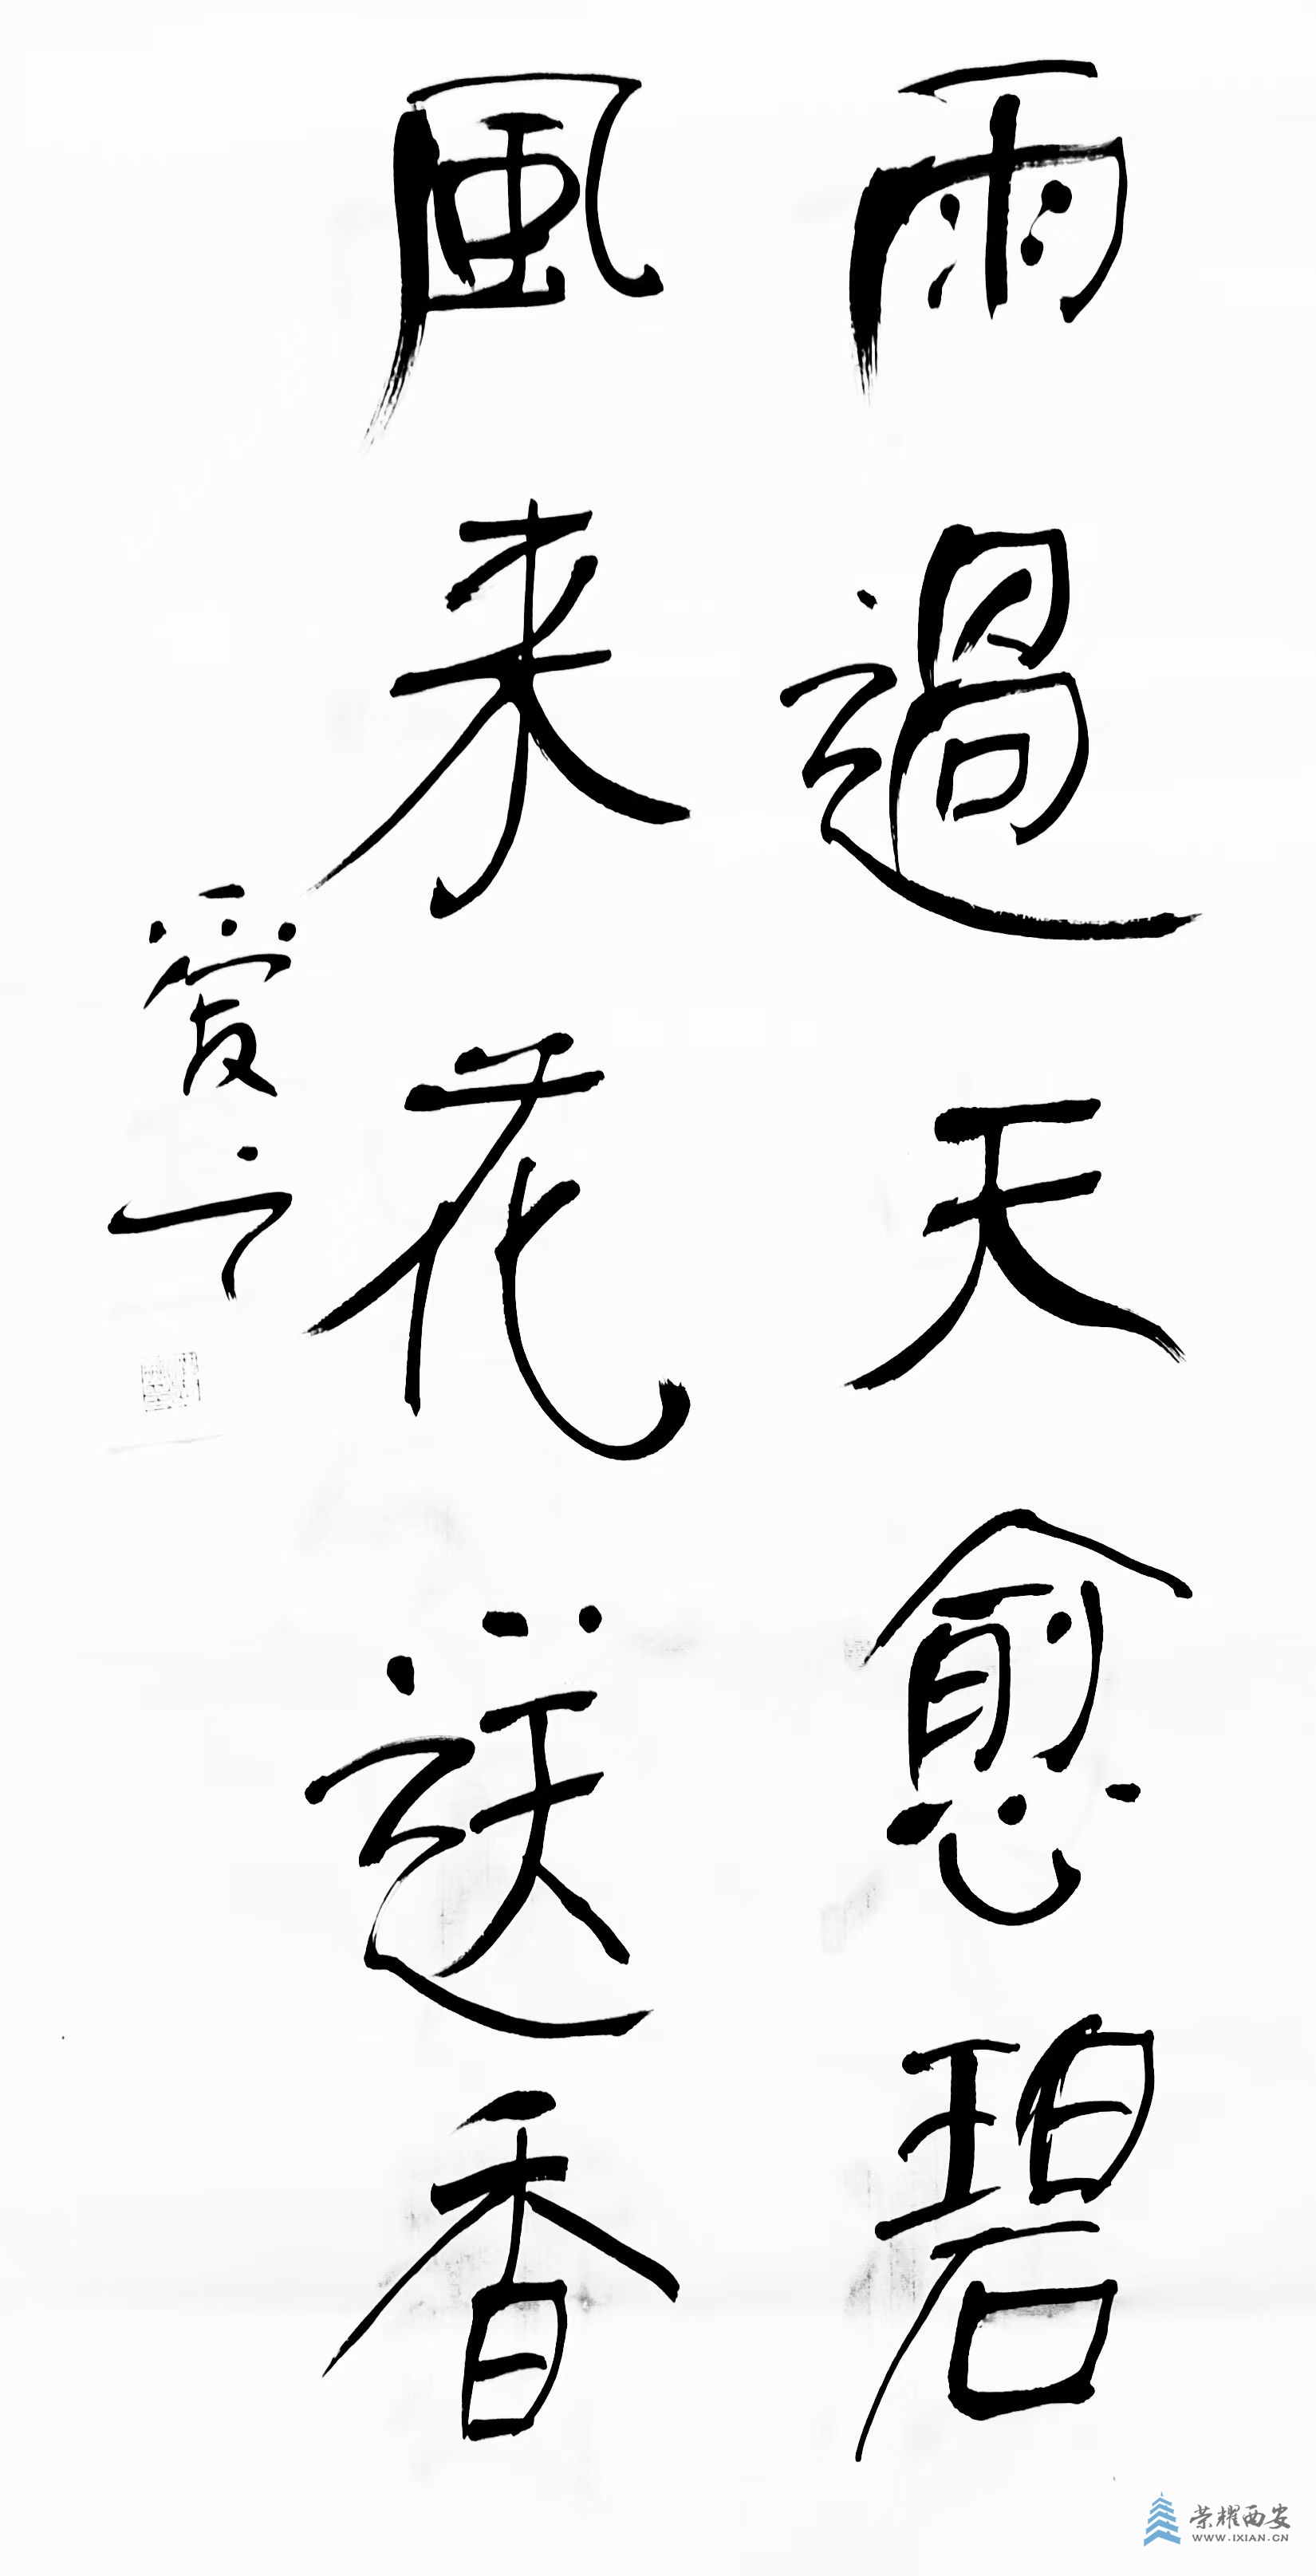 雨過天愈碧
風来花送香
爱
荣耀西安
WWW.IXIAN.CN